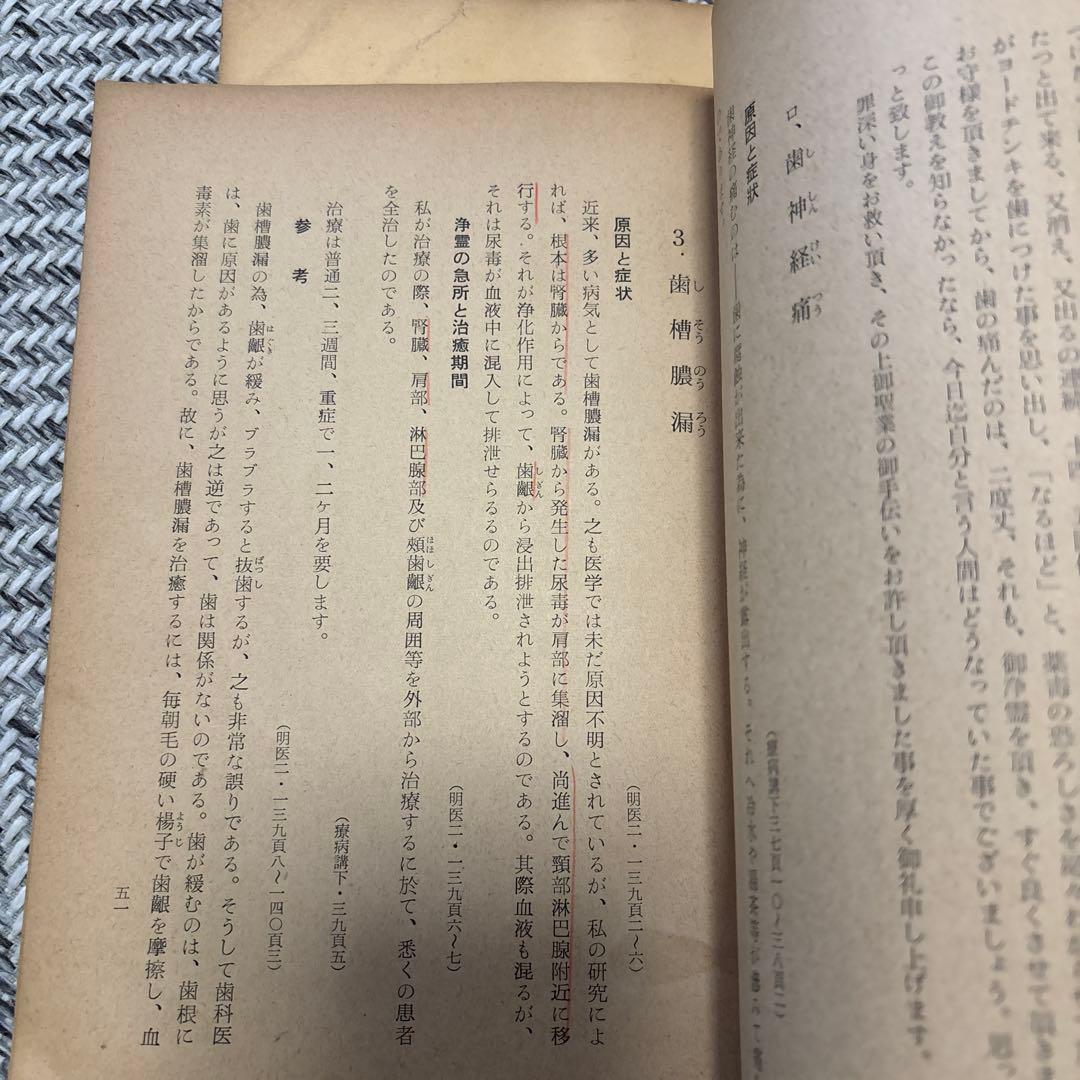 たつと出て来る、又消え、又出るの連続
がヨードチンキを歯につけた事を思い出し、「なるほど」と、薬毒の恐ろしさを
お守様を頂きましてから、歯の痛んだのは、二度丈、それも、御浄霊を頂き、すぐ良くさせて頂きま
この御教えを知らなかったなら、今日迄自分と言う人間はどうなっていた事でございましょう。思っ
っと致します。
罪深い身をお救い頂き、その上御聖業の御手伝いをお許し頂きました事を厚く御礼申し上げます。
ロ、歯神経痛
し しん けい つう
(療病講下三七頁一〇〜三八頁二)
原因と症状
歯神経の痛むのは――歯に腐蝕が出来た為に、神経が露出する。それへ
3・歯槽膿漏
し そう のう ろう
原因と症状
(明医二・一三九頁二〜六)
近来、多い病気として歯槽膿漏がある。之も医学では未だ原因不明とされているが、私の研究によ
れば、根本は腎臓からである。腎臓から発生した尿毒が肩部に集溜し、尚進んで頸部淋巴腺附近に移
行する。それが浄化作用によって、歯齦から浸出排泄されようとするのである。其際血液も混るが、
しぎん
それは尿毒が血液中に混入して排泄せらるるのである。
浄霊の急所と治癒期間
(明医二・一三九頁六〜七)
私が治療の際、腎臓、肩部、淋巴腺部及び頰歯齦の周囲等を外部から治療するに於て、悉くの患者
ほほ しぎん
を全治したのである。
(療病講下・三九頁五)
治療は普通二、三週間、重症で一、二ケ月を要します。
参考
(明医二・一三九頁八〜一四〇頁三)
歯槽膿漏の為、歯齦が緩み、ブラブラすると抜歯するが、之も非常な誤りである。そうして歯科医
はぐき ばっし
は、歯に原因があるように思うが之は逆であって、歯は関係がないのである。歯が緩むのは、歯根に
毒素が集溜したからである。故に、歯槽膿漏を治癒するには、毎朝毛の硬い楊子で歯齦を摩擦し、血
ようじ
五一